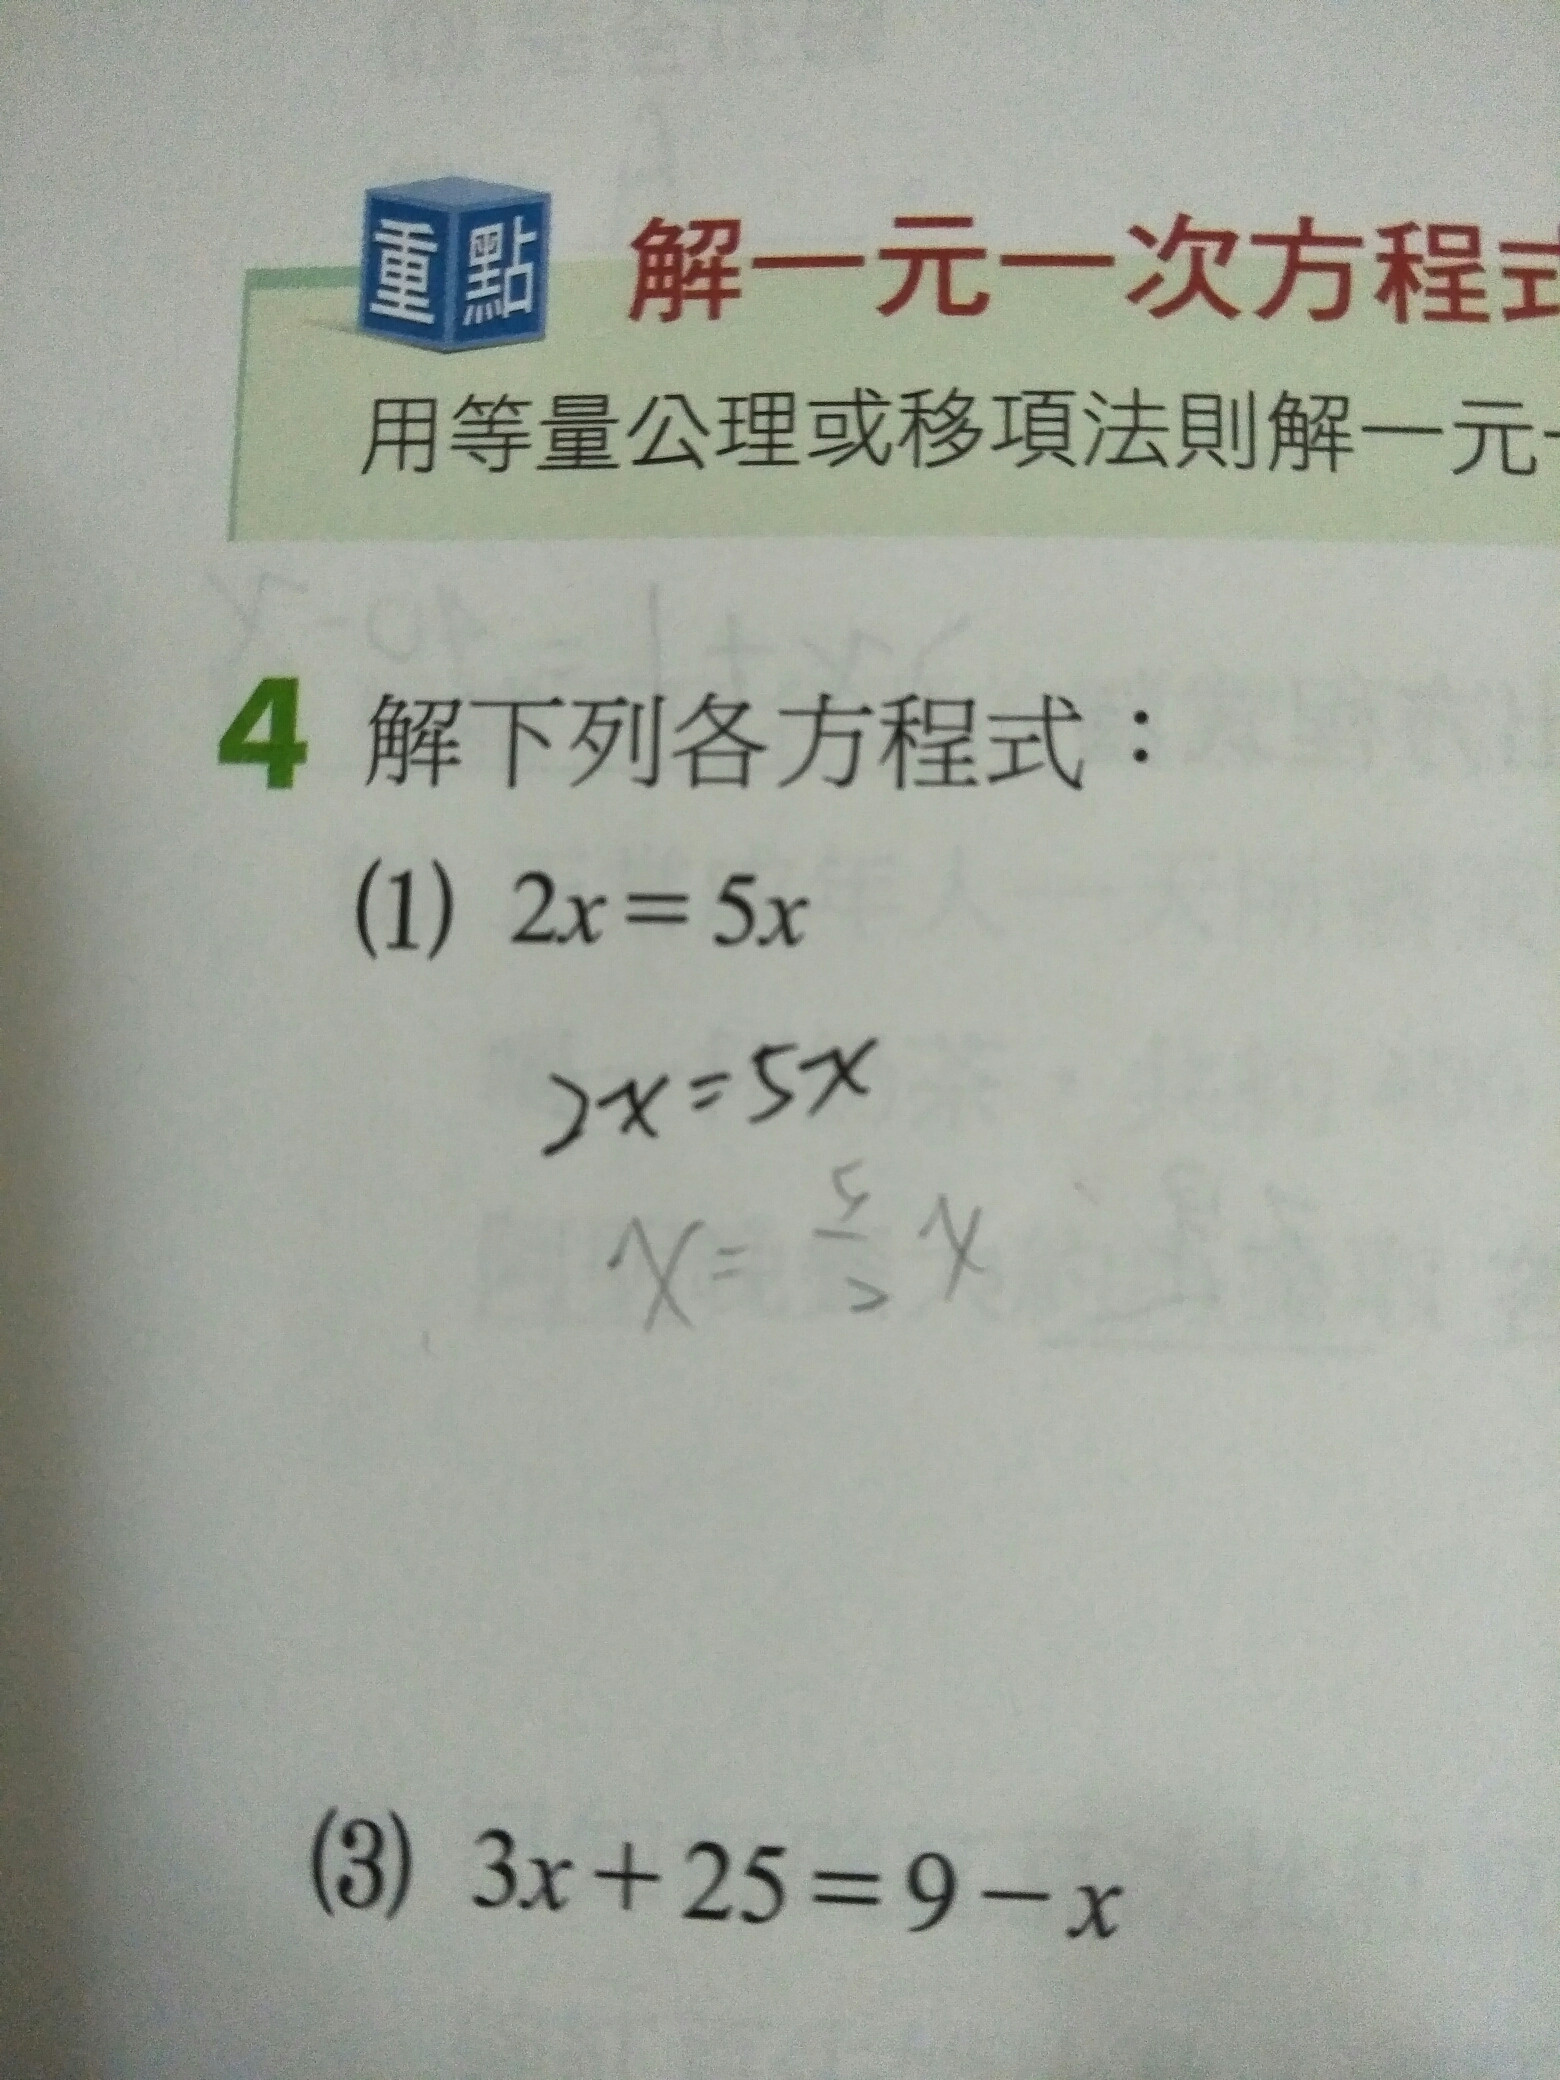 重點 解一元一次方程式
用等量公理或移項法則解一元
4 解下列各方程式：
(1) 2x=5x
2x=5x
x=5/2 x
(3) 3x+25=9-x